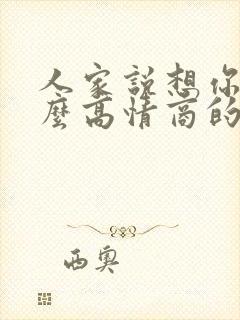 人家说想你
麼高情商的
西奥